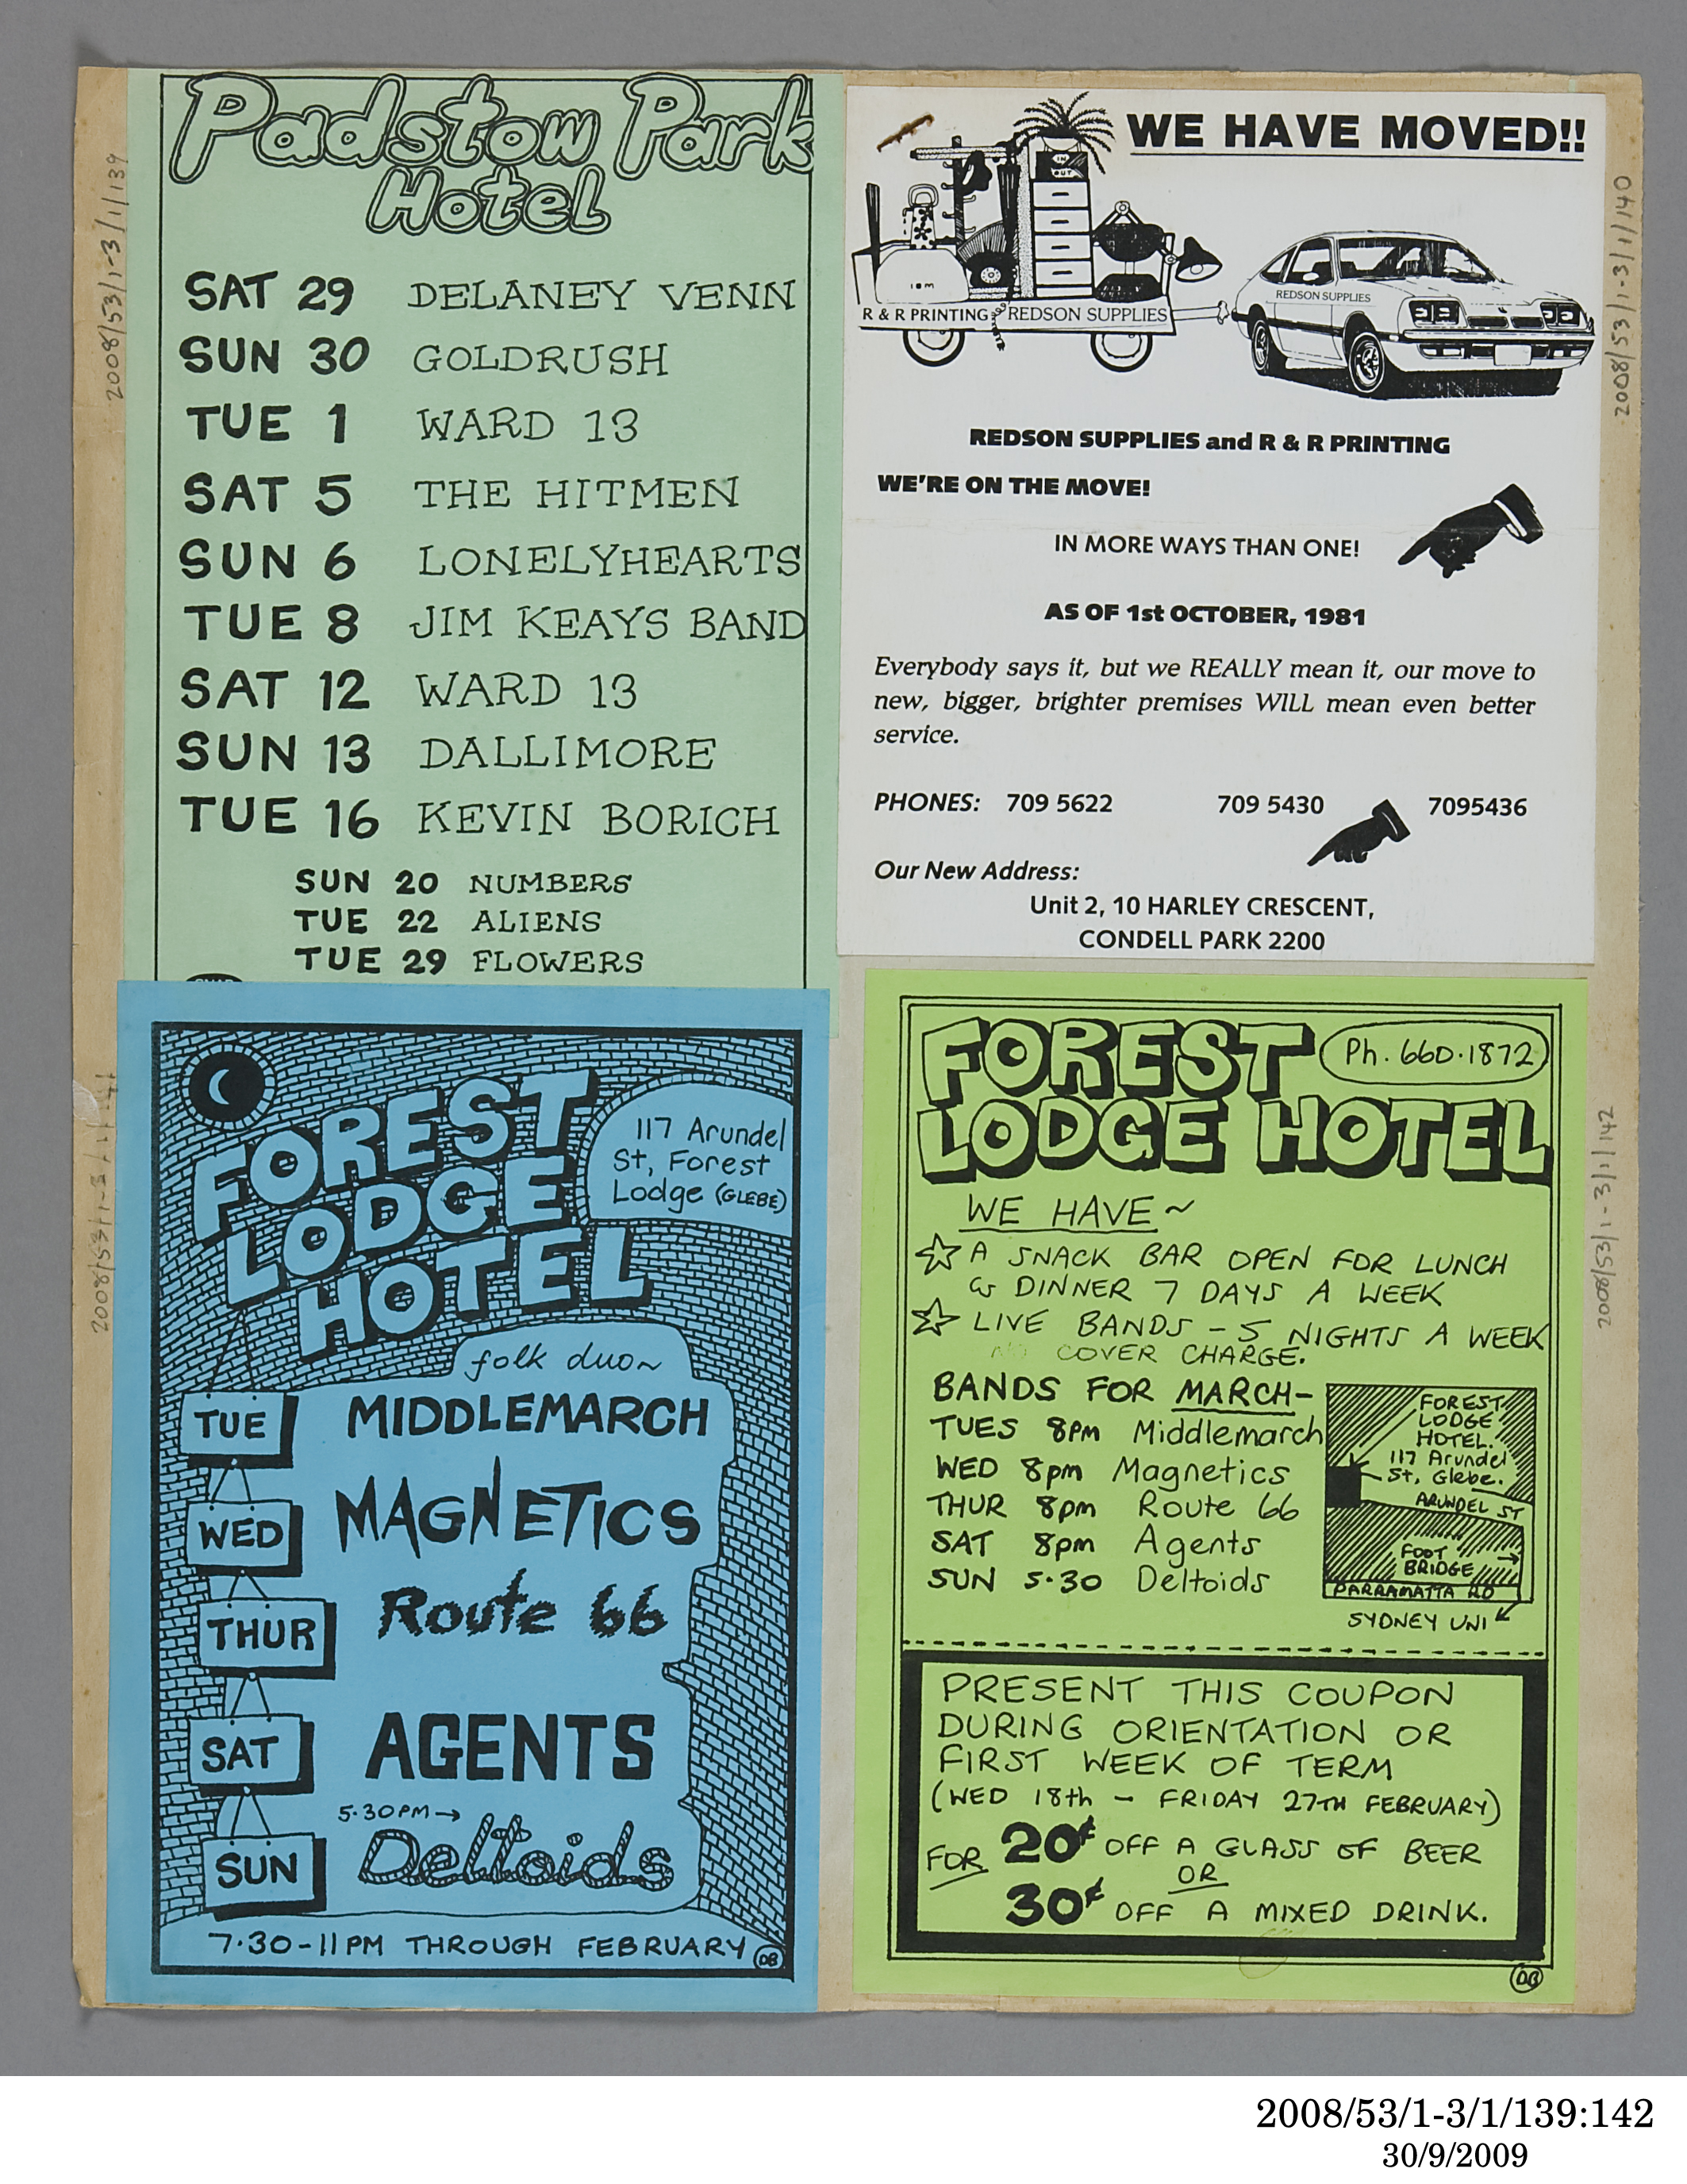 Padstow Park
Hotel
SAT 29 DELANEY VENN
SUN 30 GOLDRUSH
TUE 1 WARD 13
SAT 5 THE HITMEN
SUN 6 LONELYHEARTS
TUE 8 JIM KEAYS BAND
SAT 12 WARD 13
SUN 13 DALLIMORE
TUE 16 KEVIN BORICH
SUN 20 NUMBERS
TUE 22 ALIENS
TUE 29 FLOWERS
2008/53/1-3/1/139
WE HAVE MOVED!!
IN
OUT
IBM
R & R PRINTING REDSON SUPPLIES
REDSON SUPPLIES
REDSON SUPPLIES and R & R PRINTING
WE'RE ON THE MOVE!
IN MORE WAYS THAN ONE!
AS OF 1st OCTOBER, 1981
Everybody says it, but we REALLY mean it, our move to
new, bigger, brighter premises WILL mean even better
service.
PHONES: 709 5622 709 5430 7095436
Our New Address:
Unit 2, 10 HARLEY CRESCENT,
CONDELL PARK 2200
2008/53/1-3/1/140
FOREST
LODGE
HOTEL
117 Arundel
St, Forest
Lodge (GLEBE)
folk duo~
TUE MIDDLEMARCH
WED MAGNETICS
THUR Route 66
SAT AGENTS
5.30PM→
SUN Deltoids
7.30-11PM THROUGH FEBRUARY
DB
2008/53/1-3/1/141
FOREST
LODGE HOTEL
Ph. 660.1872
WE HAVE~
☆ A SNACK BAR OPEN FOR LUNCH
& DINNER 7 DAYS A WEEK
☆ LIVE BANDS - 5 NIGHTS A WEEK
NO COVER CHARGE.
BANDS FOR MARCH-
TUES 8PM Middlemarch
WED 8pm Magnetics
THUR 8pm Route 66
SAT 8pm Agents
SUN 5.30 Deltoids
FOREST
LODGE
HOTEL.
117 Arundel
St, Glebe.
ARUNDEL ST
FOOT
BRIDGE
PARRAMATTA RD
SYDNEY UNI
PRESENT THIS COUPON
DURING ORIENTATION OR
FIRST WEEK OF TERM
(WED 18th - FRIDAY 27TH FEBRUARY)
FOR 20¢ OFF A GLASS OF BEER
OR
30¢ OFF A MIXED DRINK.
DB
2008/53/1-3/1/142
2008/53/1-3/1/139:142
30/9/2009